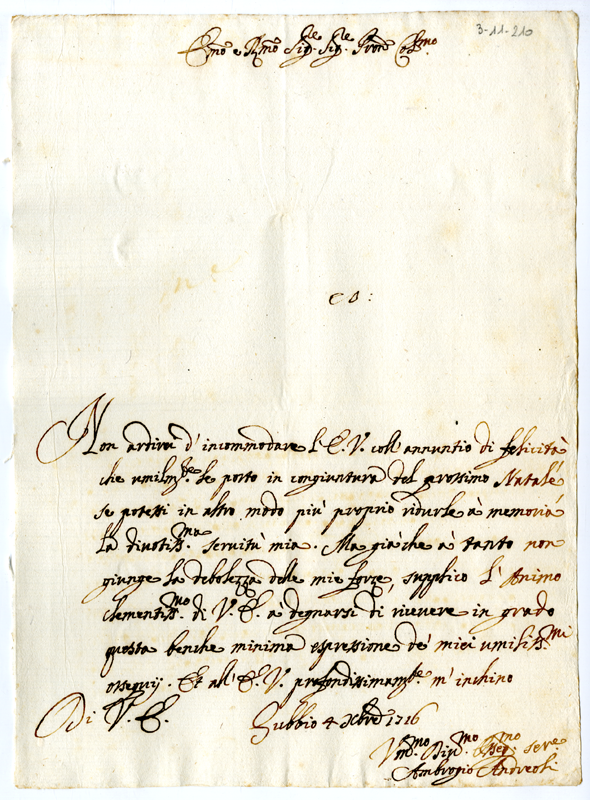 3-11-210
Em̃o e Rm̃o Sig.re Sig.re Pron̄e Col̄mo
Non ardirei d'incommodare l'E. V. coll'annuntio di felicità
che umilm.te le porto in congiuntura del prossimo Natale
se potessi in altro modo più proprio ridurle à memoria
la divotiss.ma servitù mia. Ma già che à tanto non
giunge la debolezza delle mie forze, supplico l'Animo
clementiss.mo di V. E. à degnarsi di ricevere in grado
questa benche minima espressione de' miei umiliss.mi
ossequij. Et all'E. V. profondissimam.te m'inchino
Di V. E. Gubbio 4 Xbre 1716
V.mo Div.mo Oss.mo serre
Ambrogio Andreoli